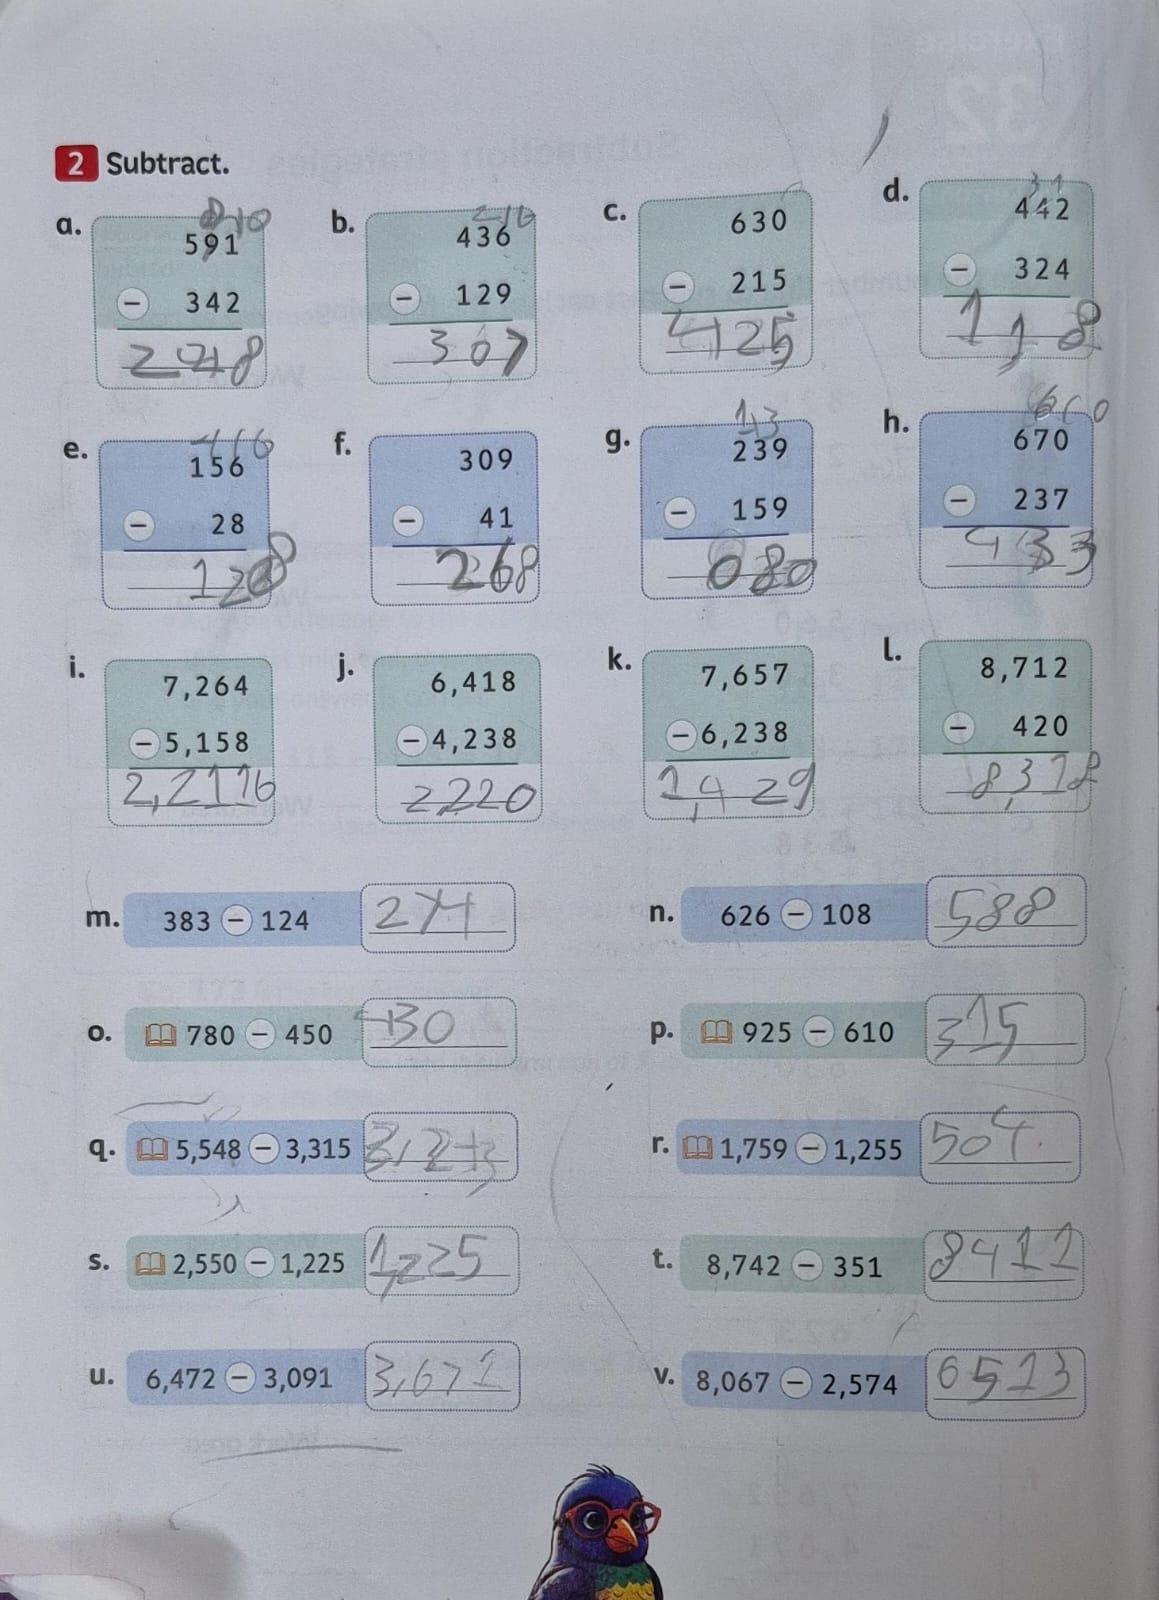 2 Subtract.
a. 591 − 342
b. 436 − 129 307
c. 630 − 215 425
d. 442 − 324 118
e. 156 − 28
f. 309 − 41 268
g. 239 − 159 080
h. 670 − 237 433
i. 7,264 − 5,158 2,2116
j. 6,418 − 4,238 2220
k. 7,657 − 6,238 1,429
l. 8,712 − 420
m. 383 − 124
n. 626 − 108 588
o. 780 − 450 430
p. 925 − 610 315
q. 5,548 − 3,315
r. 1,759 − 1,255 504
s. 2,550 − 1,225 1,225
t. 8,742 − 351 8411
u. 6,472 − 3,091 3,671
v. 8,067 − 2,574 6513